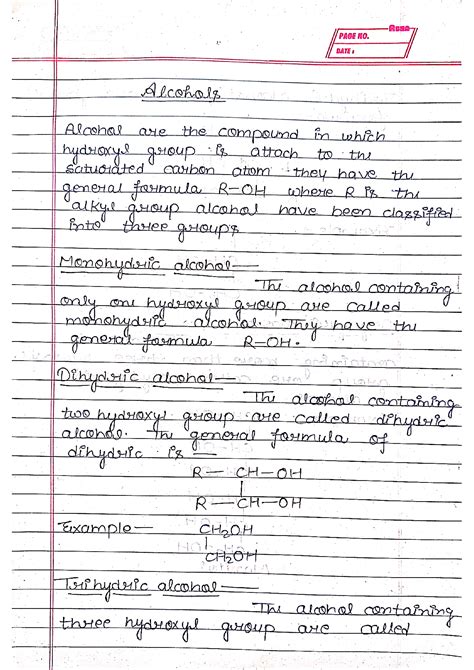 Rosa
PAGE NO.
DATE:
Alcohols
Alcohol are the compound in which
hydroxyl group is attach to the
saturated carbon atom they have the
general formula R-OH where R is the
alkyl group alcohol have been classified
into three groups
Monohydric alcohol—
The alcohol containing
only one hydroxyl group are called
monohydric alcohol. They have the
general formula R-OH.
Dihydric alcohol—
The alcohol containing
two hydroxyl group are called dihydric
alcohol. The general formula of
dihydric is —
R — CH — OH
R — CH — OH
Example — CH₂OH
CH₂OH
Trihydric alcohol —
The alcohol containing
three hydroxyl group are called